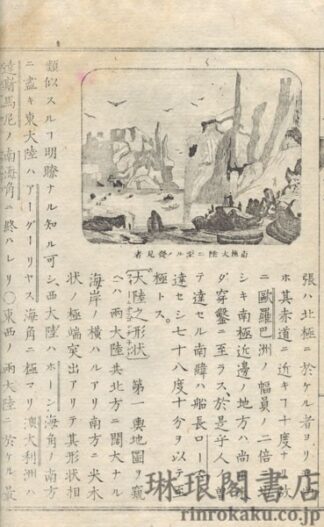 南極大陸ニ至ル發見者
張ハ北極ニ於ケル者ヨリ
ホ其赤道ニ近キヿ十度ナリ故
ニ歐羅巴洲ノ幅員ノ二倍
シキ南極近邊ノ地方ハ尚
ダ穿鑿ニ至ラス、於是乎人ノ曾
テ達セル南緯ハ船長ロース
達セシ七十八度十分ヲ以テ至
極トス。
大陸之形状 第一輿地圖ヲ
ヘハ兩大陸共北方ニ闊大ナル
海岸ノ横ハルアリ南方ニ尖木
状ノ極端突出アリテ其形状相
類似スルヿ明瞭ナル知ル可シ西大陸ハホーン海角ノ南方
ニ盡キ東大陸ハアーグーリヤス海角ニ極マリ澳大利洲ハ
謝馬尼ノ南海角ニ終ハレリ〇東西ノ兩大陸ニ於ケル最
琳琅閣書店
rinrokaku.co.jp